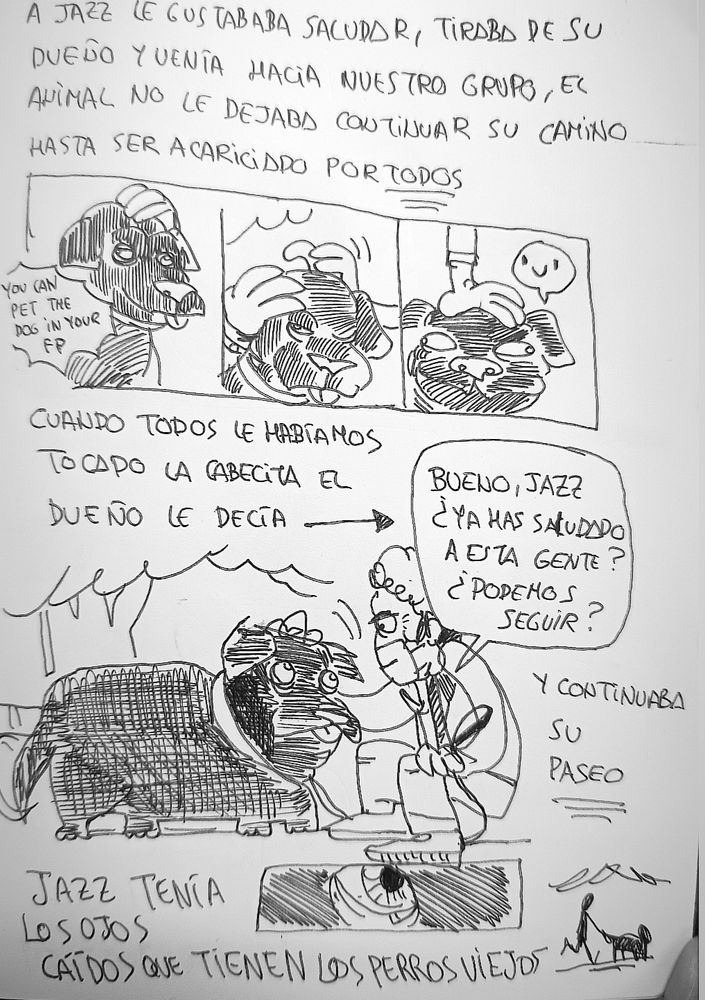 A JAZZ LE GUSTABABA SALUDAR, TIRABA DE SU
DUEÑO Y VENÍA HACIA NUESTRO GRUPO, EL
ANIMAL NO LE DEJABA CONTINUAR SU CAMINO
HASTA SER ACARICIADO POR TODOS
YOU CAN
PET THE
DOG IN YOUR
FP
CUANDO TODOS LE HABÍAMOS
TOCADO LA CABECITA EL
DUEÑO LE DECÍA
BUENO, JAZZ
¿YA HAS SALUDADO
A ESTA GENTE?
¿PODEMOS
SEGUIR?
Y CONTINUABA
SU
PASEO
JAZZ TENÍA
LOS OJOS
CAÍDOS QUE TIENEN LOS PERROS VIEJOS